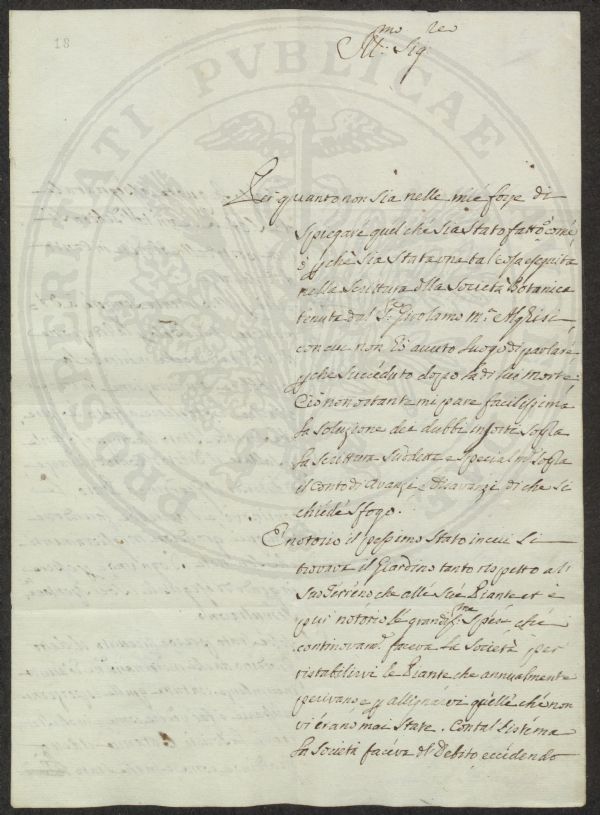 18
Ill:mo Sig:re
PROSPERITATI PVBLICAE
Per quanto non sia nelle mie forze di
spiegare quel che sia stato fatto, come
e p che sia stata una tal cosa eseguita
nella Scrittura della Società Botanica
tenuta dal Sr. Girolamo Ma. Alghisi
con cui non ho avuto luogo di parlare
p che succeduto dopo la di lui morte.
Ciò nonostante mi pare facilissima
la soluzione dei dubbi insorti sopra
la scrittura suddetta e specialmte sopra
il Conto di Avanzi e disavanzi di che si
chiede sfogo.
È notorio il pessimo stato in cui si
trovava il Giardino tanto rispetto al
suo Terreno che alle sue Piante et è
pur notorio le grandisme spese che
continovamte faceva la Società per
ristabilirvi le Piante che annualmente
perivano e p allignarvi quelle che non
vi erano mai state. Con tal sistema
la Società faceva del Debito eccedendo